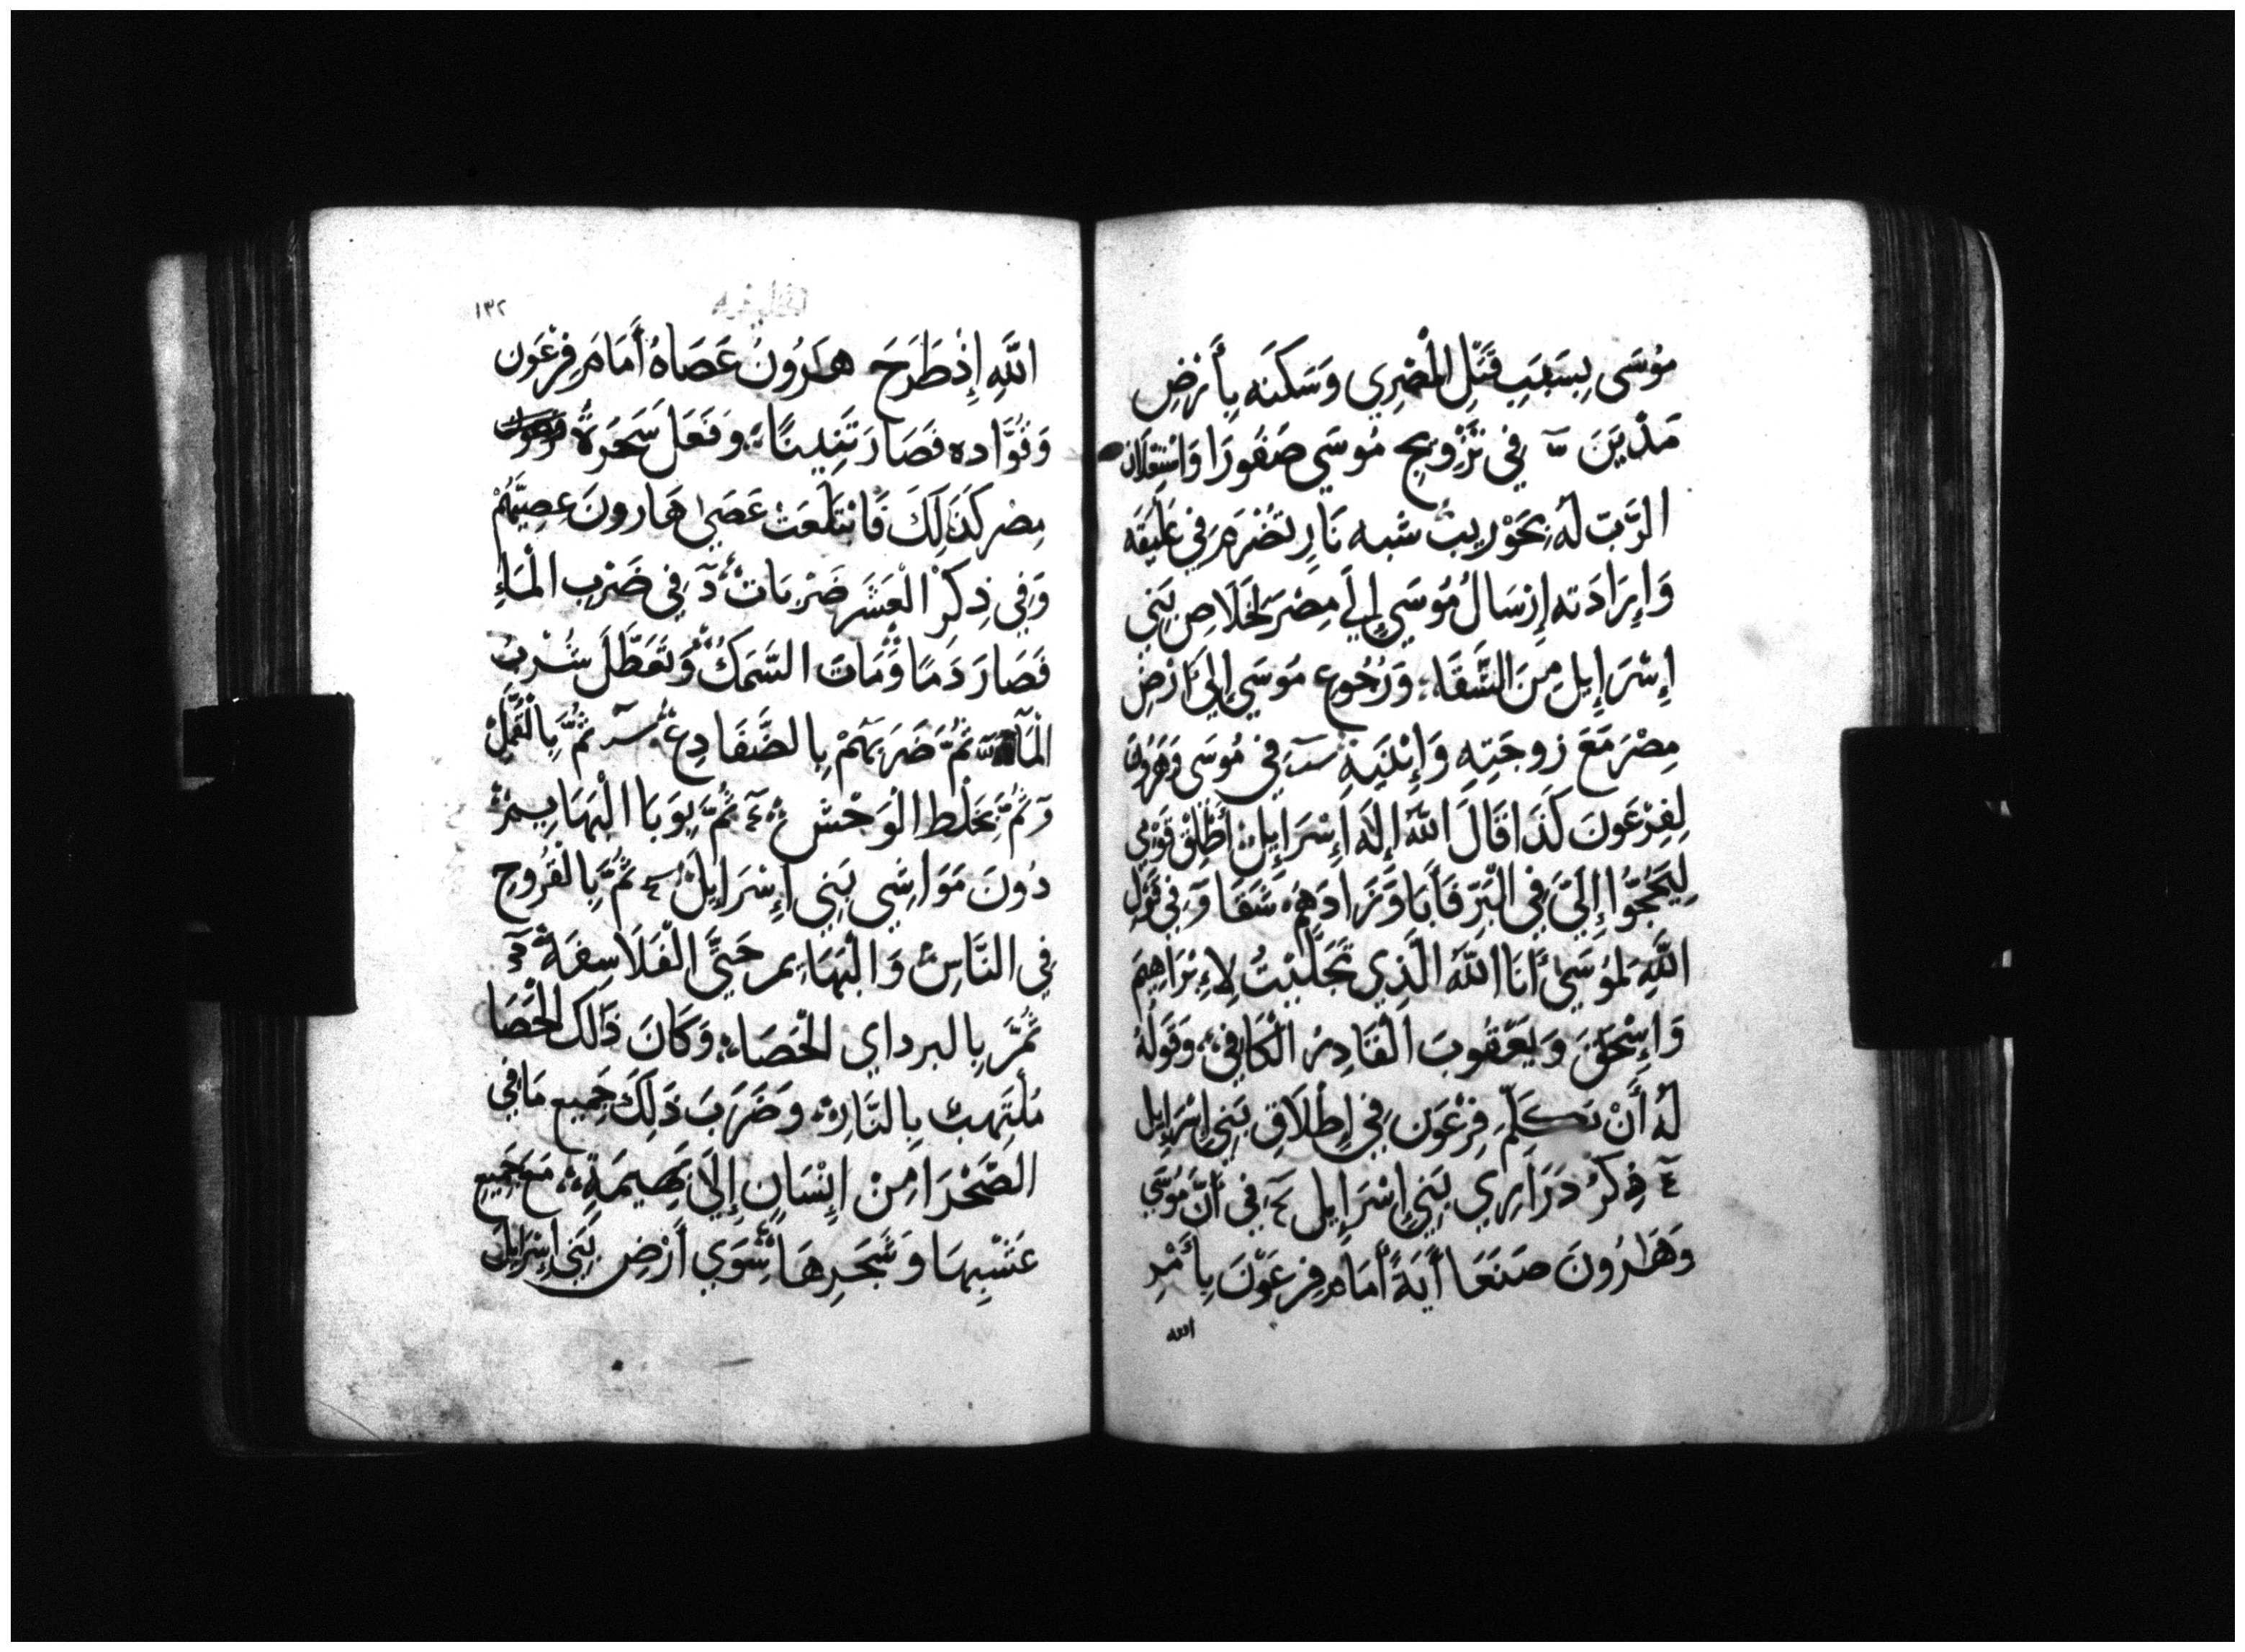 مُوسَى بِسَبَبِ قَتْلِ الْمَصْرِي وَسَكنَه بِأَرْضِ
مَدْيَنَ فِي تَزْوِيجِ مُوسَي صَفُورَا وَاسْتِعْلَان
الرَّبّ لَهُ بِحَوْرِيبُ شبه نَارٍ تُضْرَمَ فِي عُلَّيْقَه
وَإِرَادَته إِرْسَالُ مُوسَي إِلَي مِصْرَ لِخَلَاصِ بَنِي
إِسْرَإِيلَ مِنَ الشَّقَاءِ وَرُجُوع مُوسَي إِلَي أَرْضِ
مِصْرَ مَعَ زوجَتِهِ وَإِبْنَيهِ فِي مُوسَى وَهَرُونَ
لِفِرْعَوْنَ كَذَا قَالَ اللّهُ إِلَهُ إِسْرَإِيلَ أَطْلِقْ قَوْمِي
لِيَحُجُّوا إِلَيَّ فِي الْبَرّ فَأَبَا وَزَادَهُمْ شَقَا وَفِي قَوْلِ
اللَّهِ لمُوسَى أَنَا اللّهُ الَّذِي تَجَلَّيْتُ لإِبْرَاهِيمَ
وَإِسْحَقَ وَيَعْقُوبَ الْقَادِرُ الْكَافِي وَقَوْلُهُ
لَهُ أَنْ تكَلِّمَ فِرْعَوْن فِي إِطْلَاقِ بَنِي إِسْرَإِيل
ذِكْرُ دَرَارِي بَنِي إِسْرَإِيل فِي أَنَّ مُوسَي
وَهَارُونَ صَنَعَا أَيَةً أَمَامَ فِرعَوْنَ بِأَمْرِ
الله
١٣٢
اللَّهِ إِذْ طَرَحَ هَارُونُ عَصَاهُ أَمَامَ فِرْعَوْن
وَقُوَّاده فَصَارَ تَنِّينًا وَفَعَلَ سَحَرَةُ
مِصْر كَذَلِكَ فَابْتَلَعَتْ عَصَى هَارونَ عِصِيَّهُمْ
وَفِي ذِكْرْ الْعَشَر ضَرْبَات فِي ضَرْبِ الْمَاءِ
فَصَارَ دَمًا وَمَاتَ السَّمَكُ وَتَعَطَّلَ شُرْبُ
الْمَآء ثُمَّ ضَرَبَهُمْ بِالضَّفَادِعِ ثُمَّ بِالْقُمَّلْ
ثُمَّ بَخَلْط الْوَحْش ثُمَّ بِوَبَا الْبَهَايِمْ
دُونَ مَوَاشِي بَنِي إِسْرَإِيلَ ثُمَّ بِالْقُرُوحِ
فِي النَّاسِ وَالْبَهَايم حَتَّي الْفَلَاسِفَةْ
ثُمَّ بِالبردايِ الْحَصَا وَكَانَ ذَالكَ الْحَصَا
مُلْتَهِبْ بِالنَّارِ وَضَرَبَ ذَلِكَ جَمِيع مَا فِي
الصَّحْرَا مِنْ إِنْسَانٍ إِلَى بَهِيمَةٍ مَعَ جَمِيعِ
عَشْبِهَا وَشَجَرِهَا سِوَي أَرْضِ بَنِي إِسْرَإِيلَ